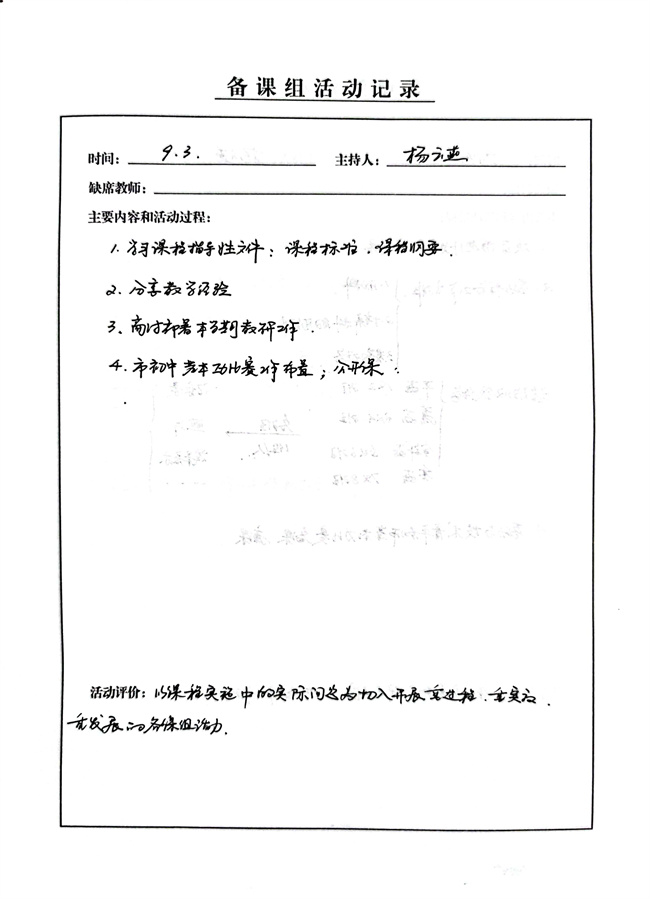 备课组活动记录
时间: 9.3. 主持人: 杨
缺席教师:
主要内容和活动过程:
1. 学习课程指导性文件: 课程标准、课程纲要.
2. 分享教学经验
3. 商讨部署本学期教研工作.
4. 市初中 基本功比赛工作布置; 公开课.
活动评价: 以课程实施中的实际问题为切入开展重过程、重实效、
重发展的备课组活动.